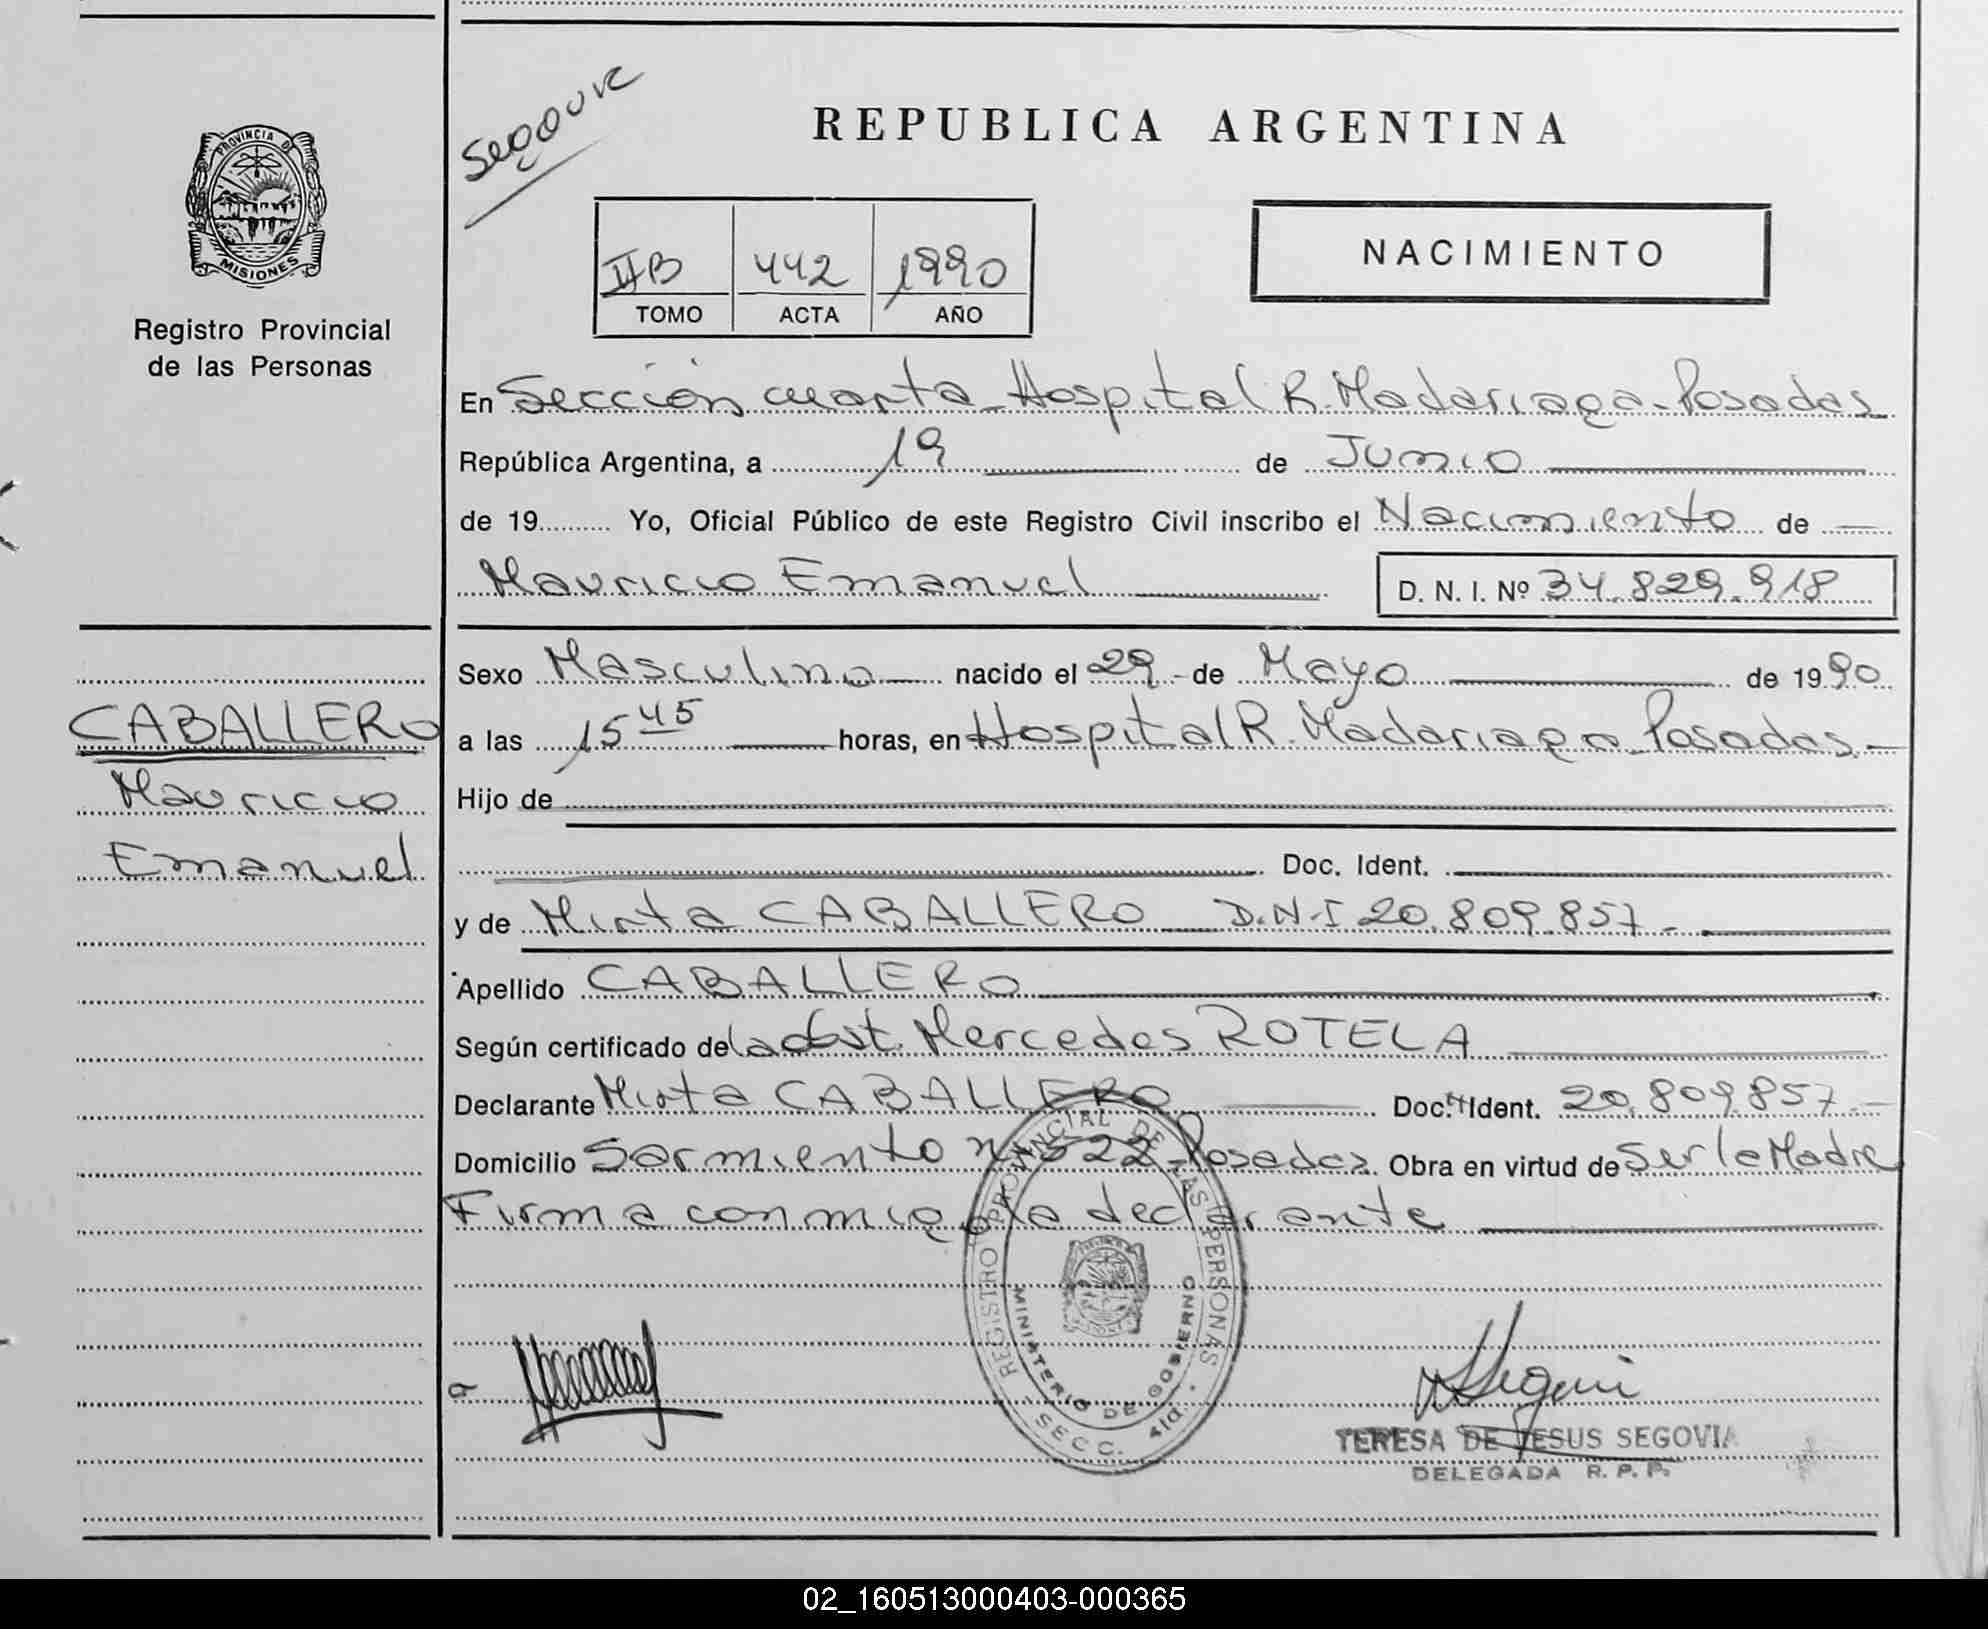 REPUBLICA ARGENTINA
PROVINCIA DE
MISIONES
Registro Provincial
de las Personas
NACIMIENTO
IIB 442 1990
TOMO ACTA AÑO
En Sección cuarta Hospital R. Madariaga - Posadas
República Argentina, a 19 de Junio
de 19.......... Yo, Oficial Público de este Registro Civil inscribo el Nacimiento de
Mauricio Emanuel D. N. I. Nº 34.829.918
Sexo Masculino nacido el 29 - de Mayo de 1990
CABALLERO
a las 15 45 horas, en Hospital R. Madariaga - Posadas -
Mauricio
Hijo de
Emanuel
Doc. Ident.
y de Mirta CABALLERO D.N.I 20.809.857 -
Apellido CABALLERO
Según certificado de la obst. Mercedes ROTELA
Declarante Mirta CABALLERO Doc. Ident. 20.809.857 -
Domicilio Sarmiento nº 522 - Posadas. Obra en virtud de Ser la Madre
Firma conmigo la declarante
REGISTRO PROVINCIAL DE LAS PERSONAS
MINISTERIO DE GOBIERNO
SECC. 4ta.
TERESA DE JESUS SEGOVIA
DELEGADA R. P. P.
02_160513000403-000365